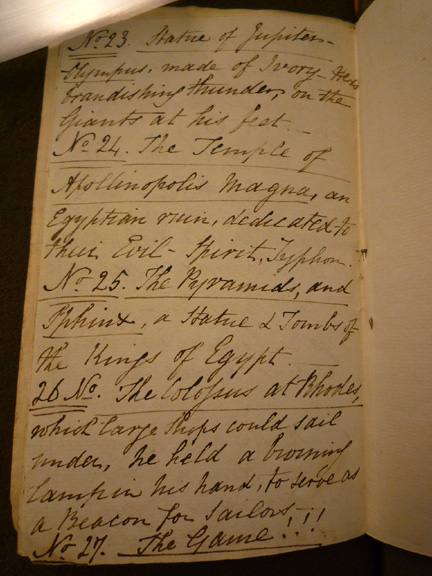 No. 23. Statue of Jupiter-
Olympus, made of Ivory. He is
brandishing thunder, on the
Giants at his feet.
No. 24. The Temple of
Apollinopolis Magna, an
Egyptian ruin, dedicated to
their Evil-Spirit, Typhon.
No. 25. The Pyramids, and
Sphinx, a Statue & Tombs of
the Kings of Egypt.
26 No. The Colossus at Rhodes,
which large Ships could sail
under, he held a burning
lamp in his hand, to serve as
a Beacon for Sailors.
No. 27. The Game!!!